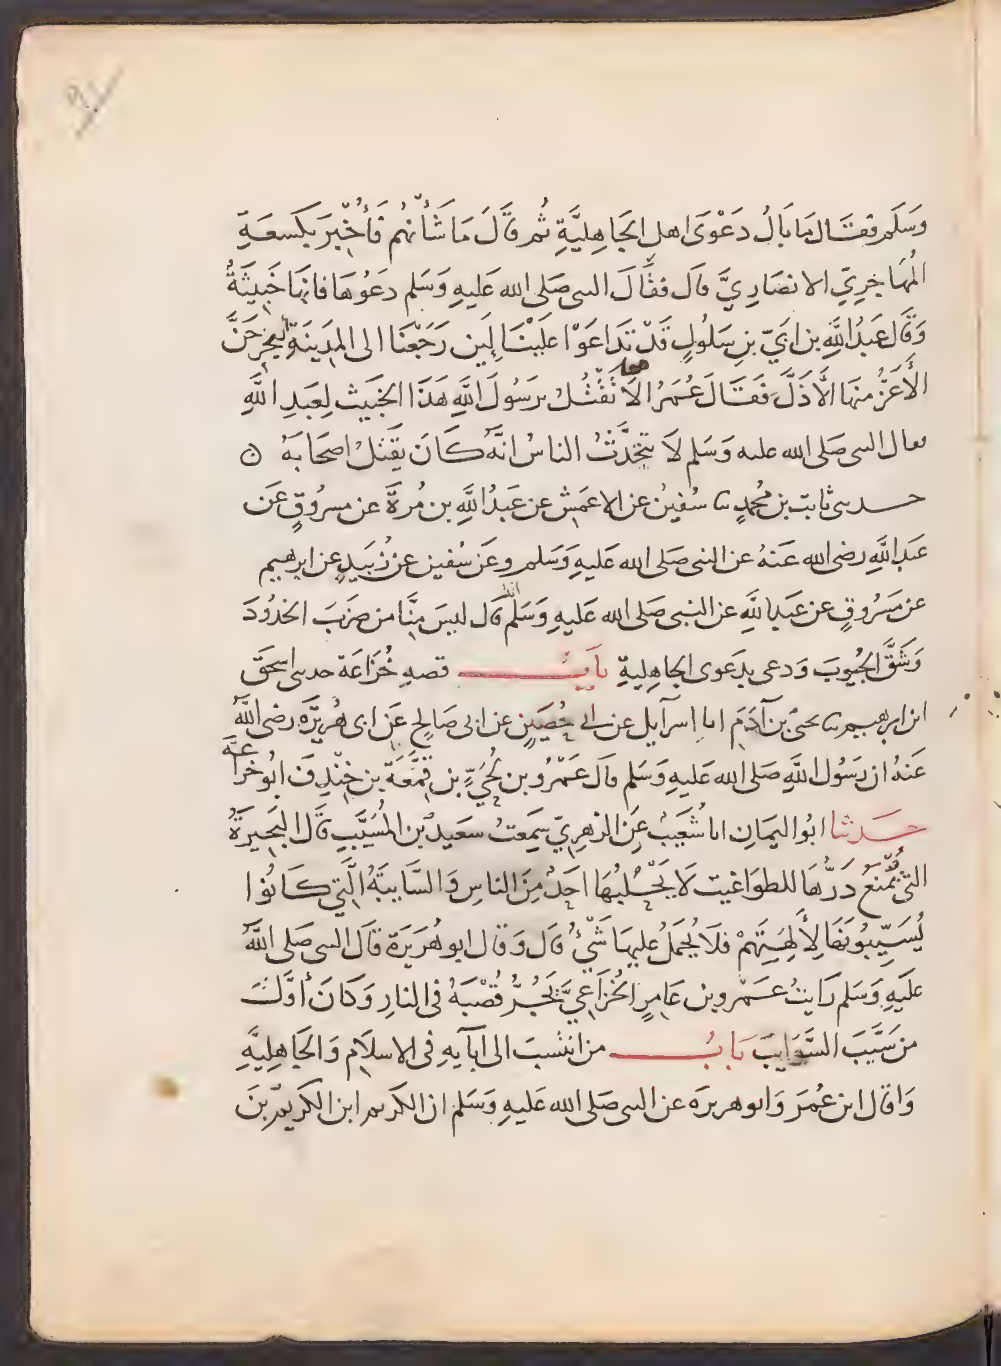 وَسَلَم فقَالَ مَا بَالُ دَعْوَى اهل الجَاهِليَّةِ ثُم قَّالَ مَا شَأْنُهُم فَأُخْبِرَ بكَسعَةِ
المُهَاجِرِيِّ الانصَارِيَّ قال فقَالَ النبى صَلى الله عَليهِ وَسَلم دعَوُهَا فانهَا خَبِيثَةٌ
وَقَال عَبدُ اللَّهِ بن ابَيّ بنِ سَلُولٍ قَدْ تَدَاعَوْا عَلَيْنَا لَئِن رَجَعْنَا الى المدِينَةِ ليُخرِجَنَّ
الأَعَزُّ منهَا الأَذَلَّ فَقَالَ عُمَرُ الَا نَقْتُلُ يرَسُولَ اللَّهِ هَذَا الخَبيث لِعَبدِ اللَّهِ
فقال النبى صَلى الله عليه وَسَلم لَا يَتحَدَّثُ الناسُ انَّهُ كَانَ يَقتلُ اصحَابَهُ ن
حدثنى ثَابت بن مُحمدٍ نا سُفينُ عن الاعمَش عن عَبدُ اللَّهِ بن مُرةَّ عن مسرُوقٍ عَن
عَبد اللَّهِ رضى الله عَنهُ عن النبى صَلى الله عَليهِ وَسَلم وعَن سُفين عن زُبَيدٍ عن ابرهيم
عن مَسرُوقٍ عن عَبد اللَّهِ عن النبى صَلى الله عَليهِ وَسَلم انه قَال ليسَ مِنَّا من ضرَبَ الخدُودَ
وَشَقَّ الجُيوبَ وَدعى بدَعوى الجاهِليةِ بَابُ قصهِ خُزَاعَة حدثنى اسحَق
ابن ابرهيم نا يحيىٰ بن آدَمَ انا إسرَآيل عن ابى حُصَينٍ عن ابى صَالحٍ عَن ابى هُريرَة رضى اللَّهُ
عَنهُ ان رَسُول اللَّهِ صَلى الله عَليهِ وَسَلم قال عَمْرُو بن لُحَيِّ بن قَمَعَةَ بن خِنْدِفَ ابُو خزاعَة
حَدثنا ابُو اليمَانِ انا شُعَيبُ عَن الزهرِيّ سَمِعتُ سعَيدَ بن المسَيّبِ قَال البَحِيرَةُ
التى يُمْنَعُ دَرُّهَا للطوَاغيت لَا يَحْلُبُهَا احَدٌ مِنَ الناسِ وَالسَّايبَةُ الَّتِي كَانُوا
يُسَيّبُونَهَا لِأَلِهَتِهِمْ فلَا يُحمَلُ عليهَا شَيْءٌ قَال وَقَال ابو هُرَيرَة قَال النبى صَلى اللَّهُ
عَلَيهِ وَسَلم رَايتُ عَمْرو بن عَامِرٍ الخُزَاعِيَّ يَجُرُّ قُصْبَهُ فى النارِ وَكانَ أَوَّلَ
من سَيَّبَ السَّوَايبَ بَابُ من انتسَبَ الى اٰبآيهِ فى الاسلَامِ وَالجَاهِليَّةِ
وَقَال ابن عُمَرَ وَابو هريرَة عن النبى صَلى الله عَليهِ وَسَلم ان الكريم ابن الكَريِم بنَ